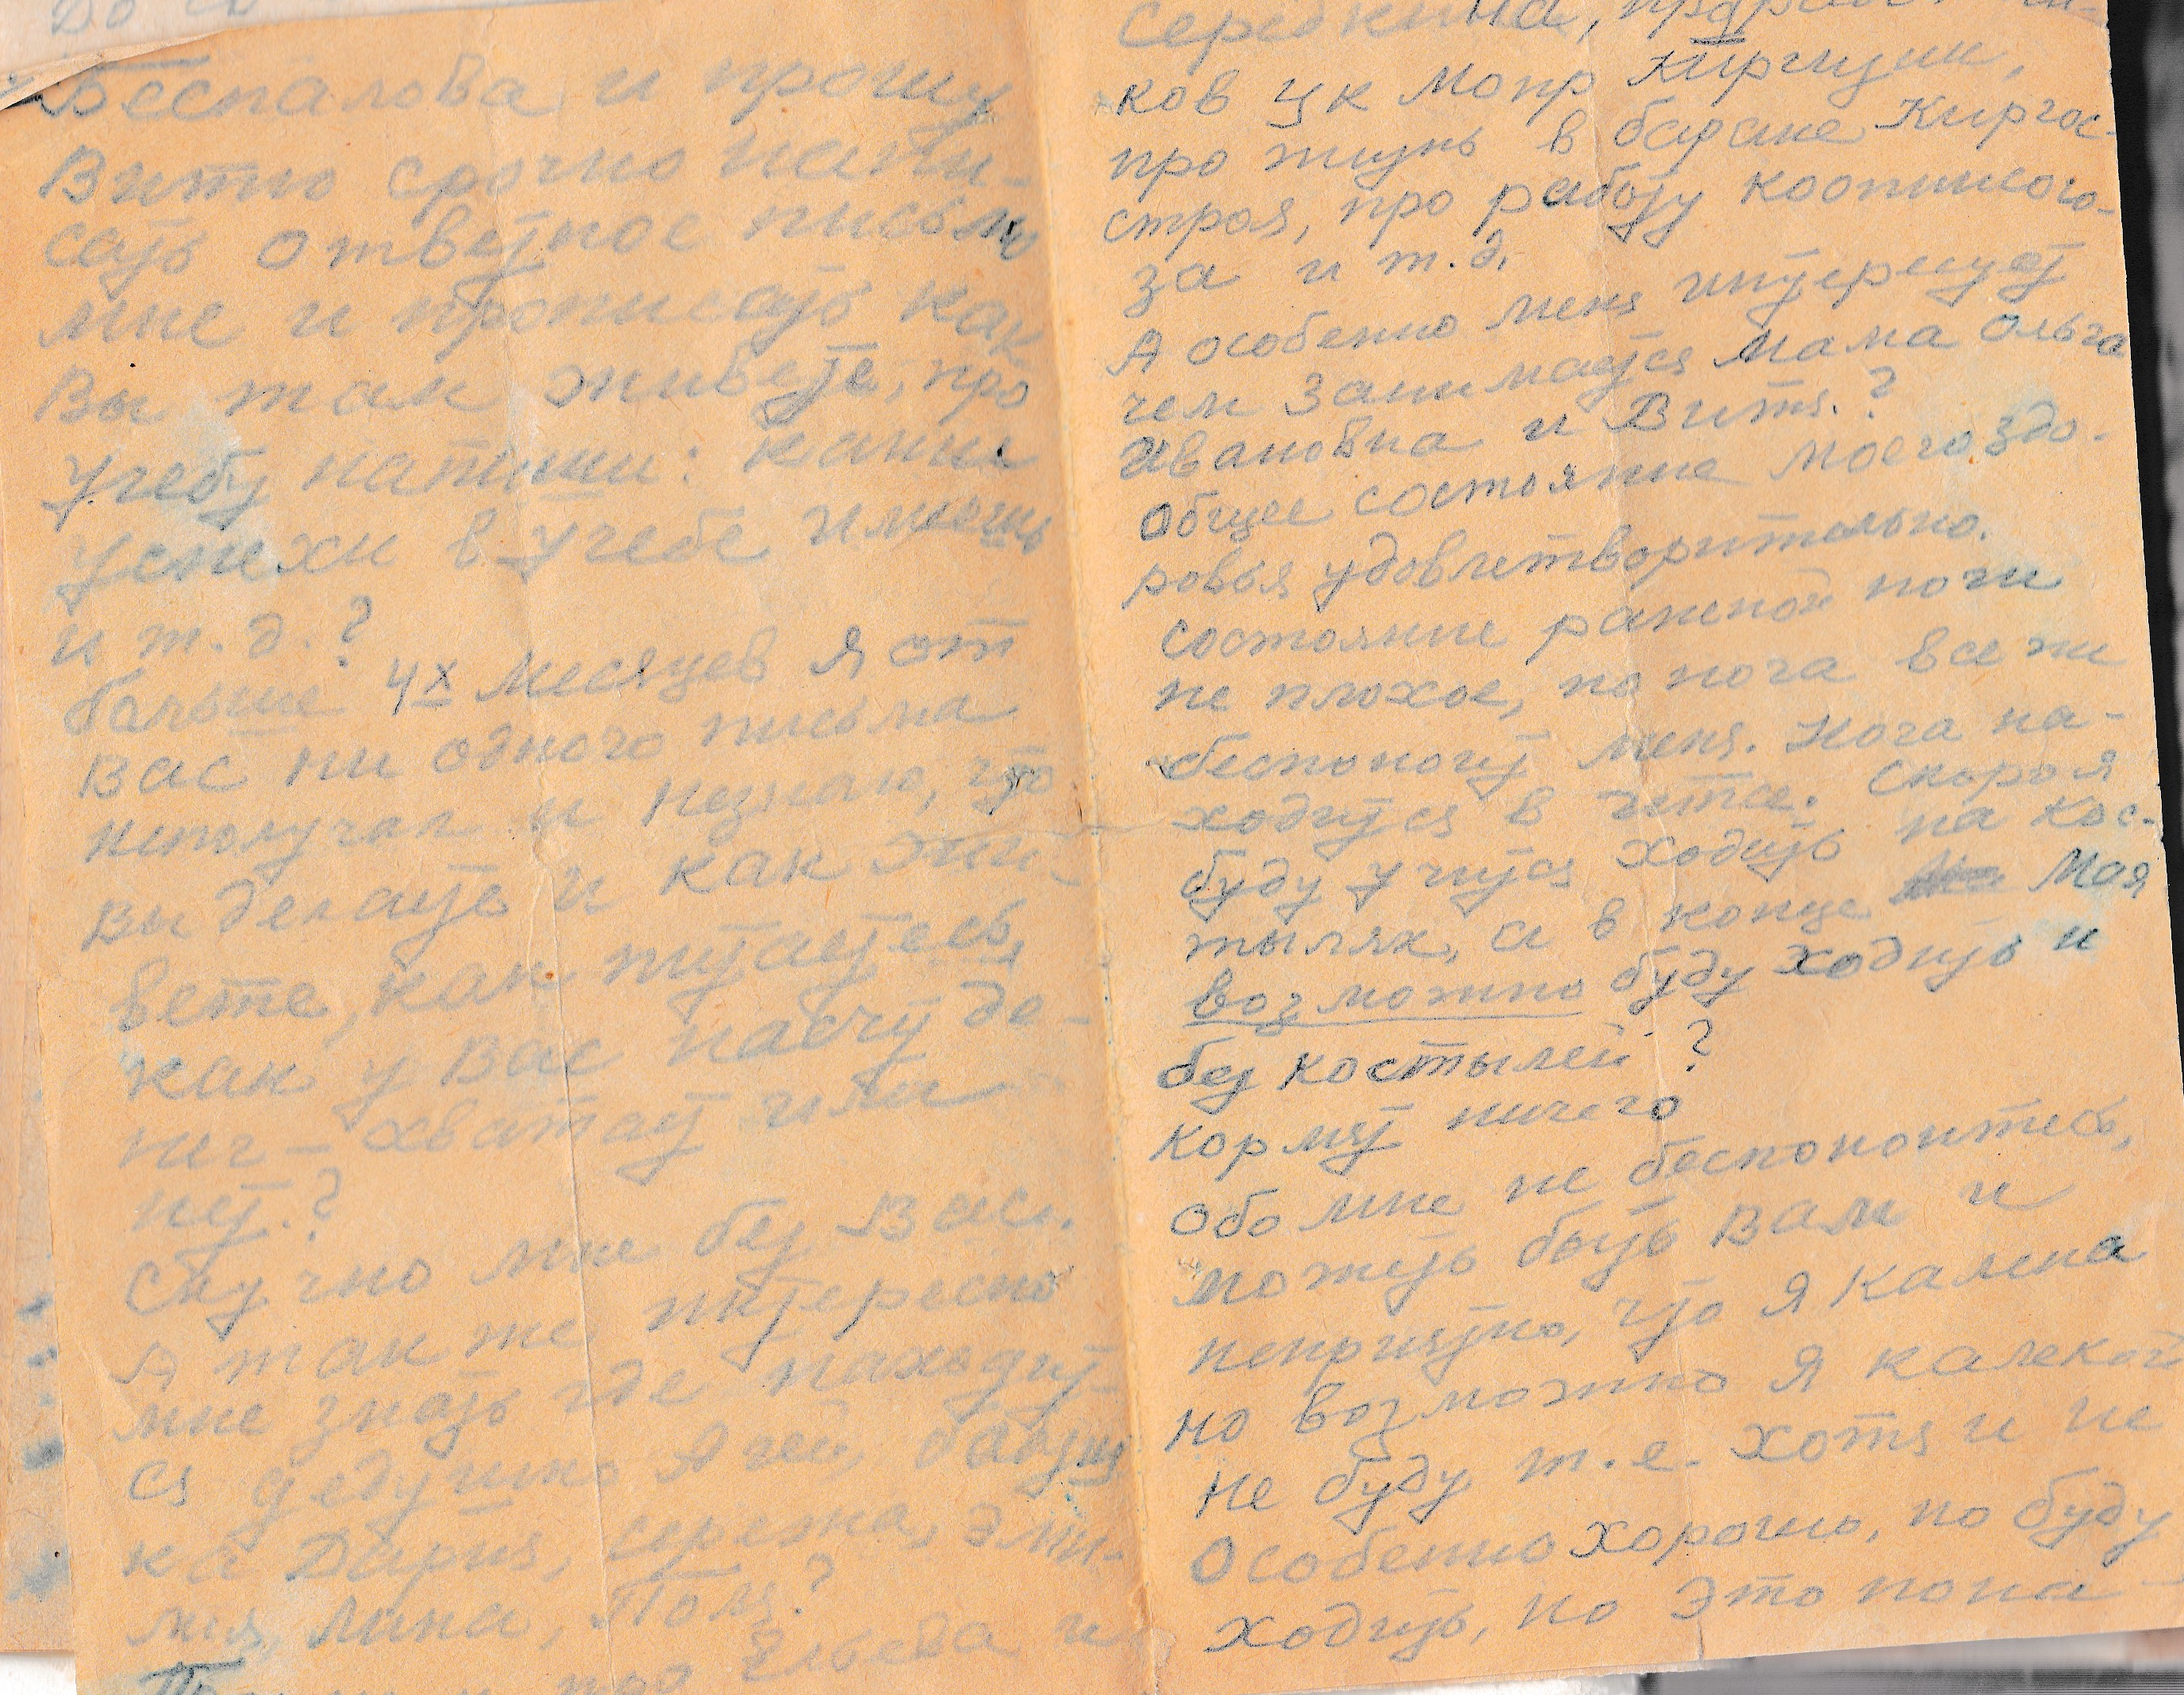 Беспалова и прошу
Витю срочно напи-
сать ответное письмо
мне и прописать как
Вы там живете, про
учебу напиши: какие
успехи в учебе имеешь
и т.д.?
больше 4х месяцев я от
Вас ни одного письма
неполучал и незнаю, что
вы делаете и как жи-
вете, как питаетесь,
как у Вас насчет де-
нег – хватает или
нет.?
Скучно мне без Вас.
А так же интересно
мне знать где находит-
ся дедушка Агей, бабуш-
ка Дария, сережа, Эми-
лия, Лина, Поля?
про Глебова и
Середкина, про работни-
ков ЦК Мопр Киргизии,
про жизнь в бараке Киргос-
строя, про работу коопинсою-
за и т.д.
А особенно меня интересует
чем занимается мама Ольга
Ивановна и Витя.?
Общее состояние моего здо-
ровья удовлетворительно.
состояние раненой ноги
не плохое, но нога все же
беспокоит меня. Нога на-
ходится в гипсе. Скоро я
буду учится ходить на кос-
тылях, а в конце Мая
возможно буду ходить и
без костылей?
Кормят ничего
Обо мне не беспокоитесь,
можеть быть вам и
неприятно, что я калека
но возможно я калекой
не буду т.е. хотя и не
Особенно хорошо, но буду
ходить, но это пока